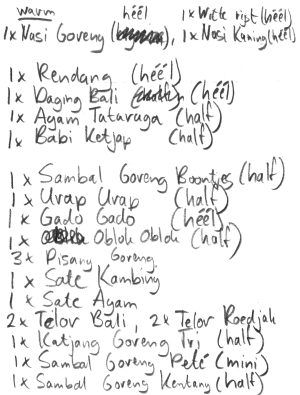 warm héél 1x Witte rijst (héél)
1x Nasi Goreng, 1x Nasi Kuning (héél)
1x Rendang (héél)
1x Daging Bali (héél)
1x Ayam Tataruga (half)
1x Babi Ketjap (half)
1x Sambal Goreng Boontjes (half)
1x Urap Urap (half)
1x Gado Gado (héél)
1x Obloh Obloh (half)
3x Pisang Goreng
1x Sate Kambing
1x Sate Ayam
2x Telor Bali, 2x Telor Roedjak
1x Katjang Goreng Tri (half)
1x Sambal Goreng Peté (mini)
1x Sambal Goreng Kentang (half)